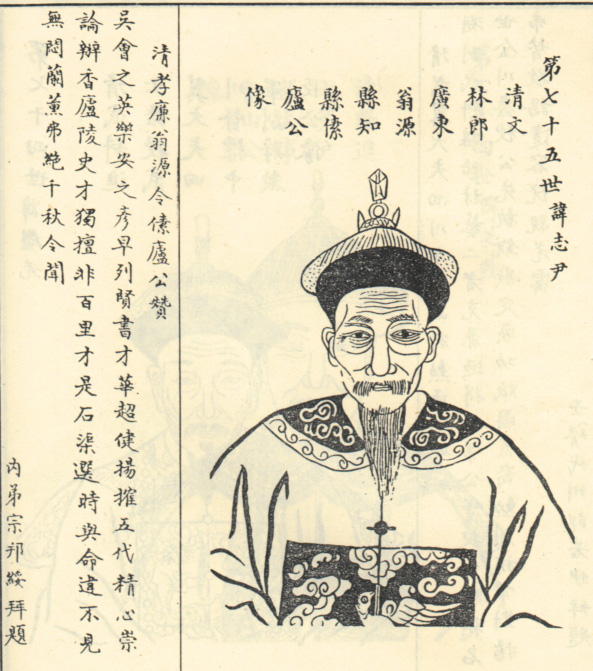 第七十五世諱志尹
清文
林郎
廣東
翁源
縣知
縣傃
廬公
像
清孝廉翁源令傃廬公贊
吳會之英樂安之彥早列賢書才華超健揚搉五代精心崇
論辦香廬陵史才獨擅非百里才是石渠選時與命違不見
無悶蘭薰弗絕千秋令聞
內弟宗邦綏拜題